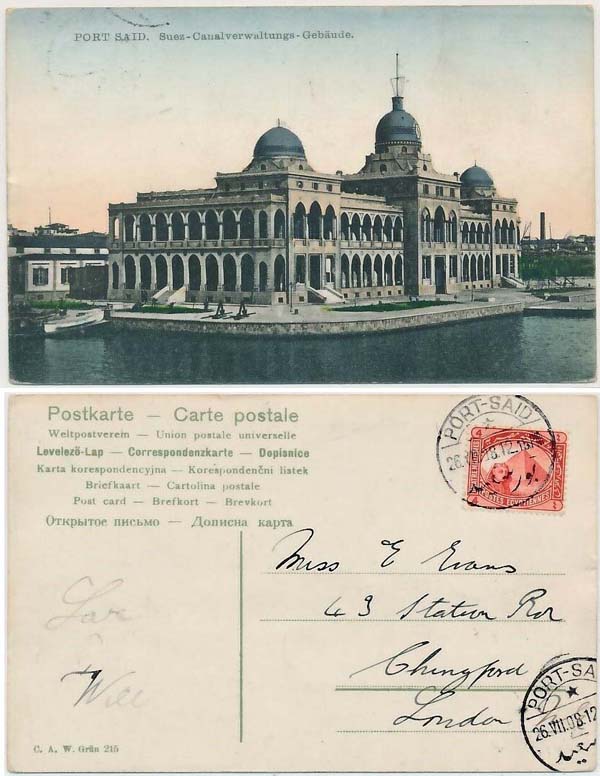 PORT SAID. Suez-Canalverwaltungs-Gebäude.
Postkarte — Carte postale
Weltpostverein — Union postale universelle
Levelező-Lap — Correspondenzkarte — Dopisnice
Karta korespondencyjna — Korespondenčni listek
Briefkaart — Cartolina postale
Post card — Brefkort — Brevkort
Открытое письмо — Дописна карта
PORT-SAID
4
4
POSTES EGYPTIENNES
Miss E Evans
43 Station Rd
Chingford
London
Will
PORT-SA
26.VII.08.12
C. A. W. Grün 215